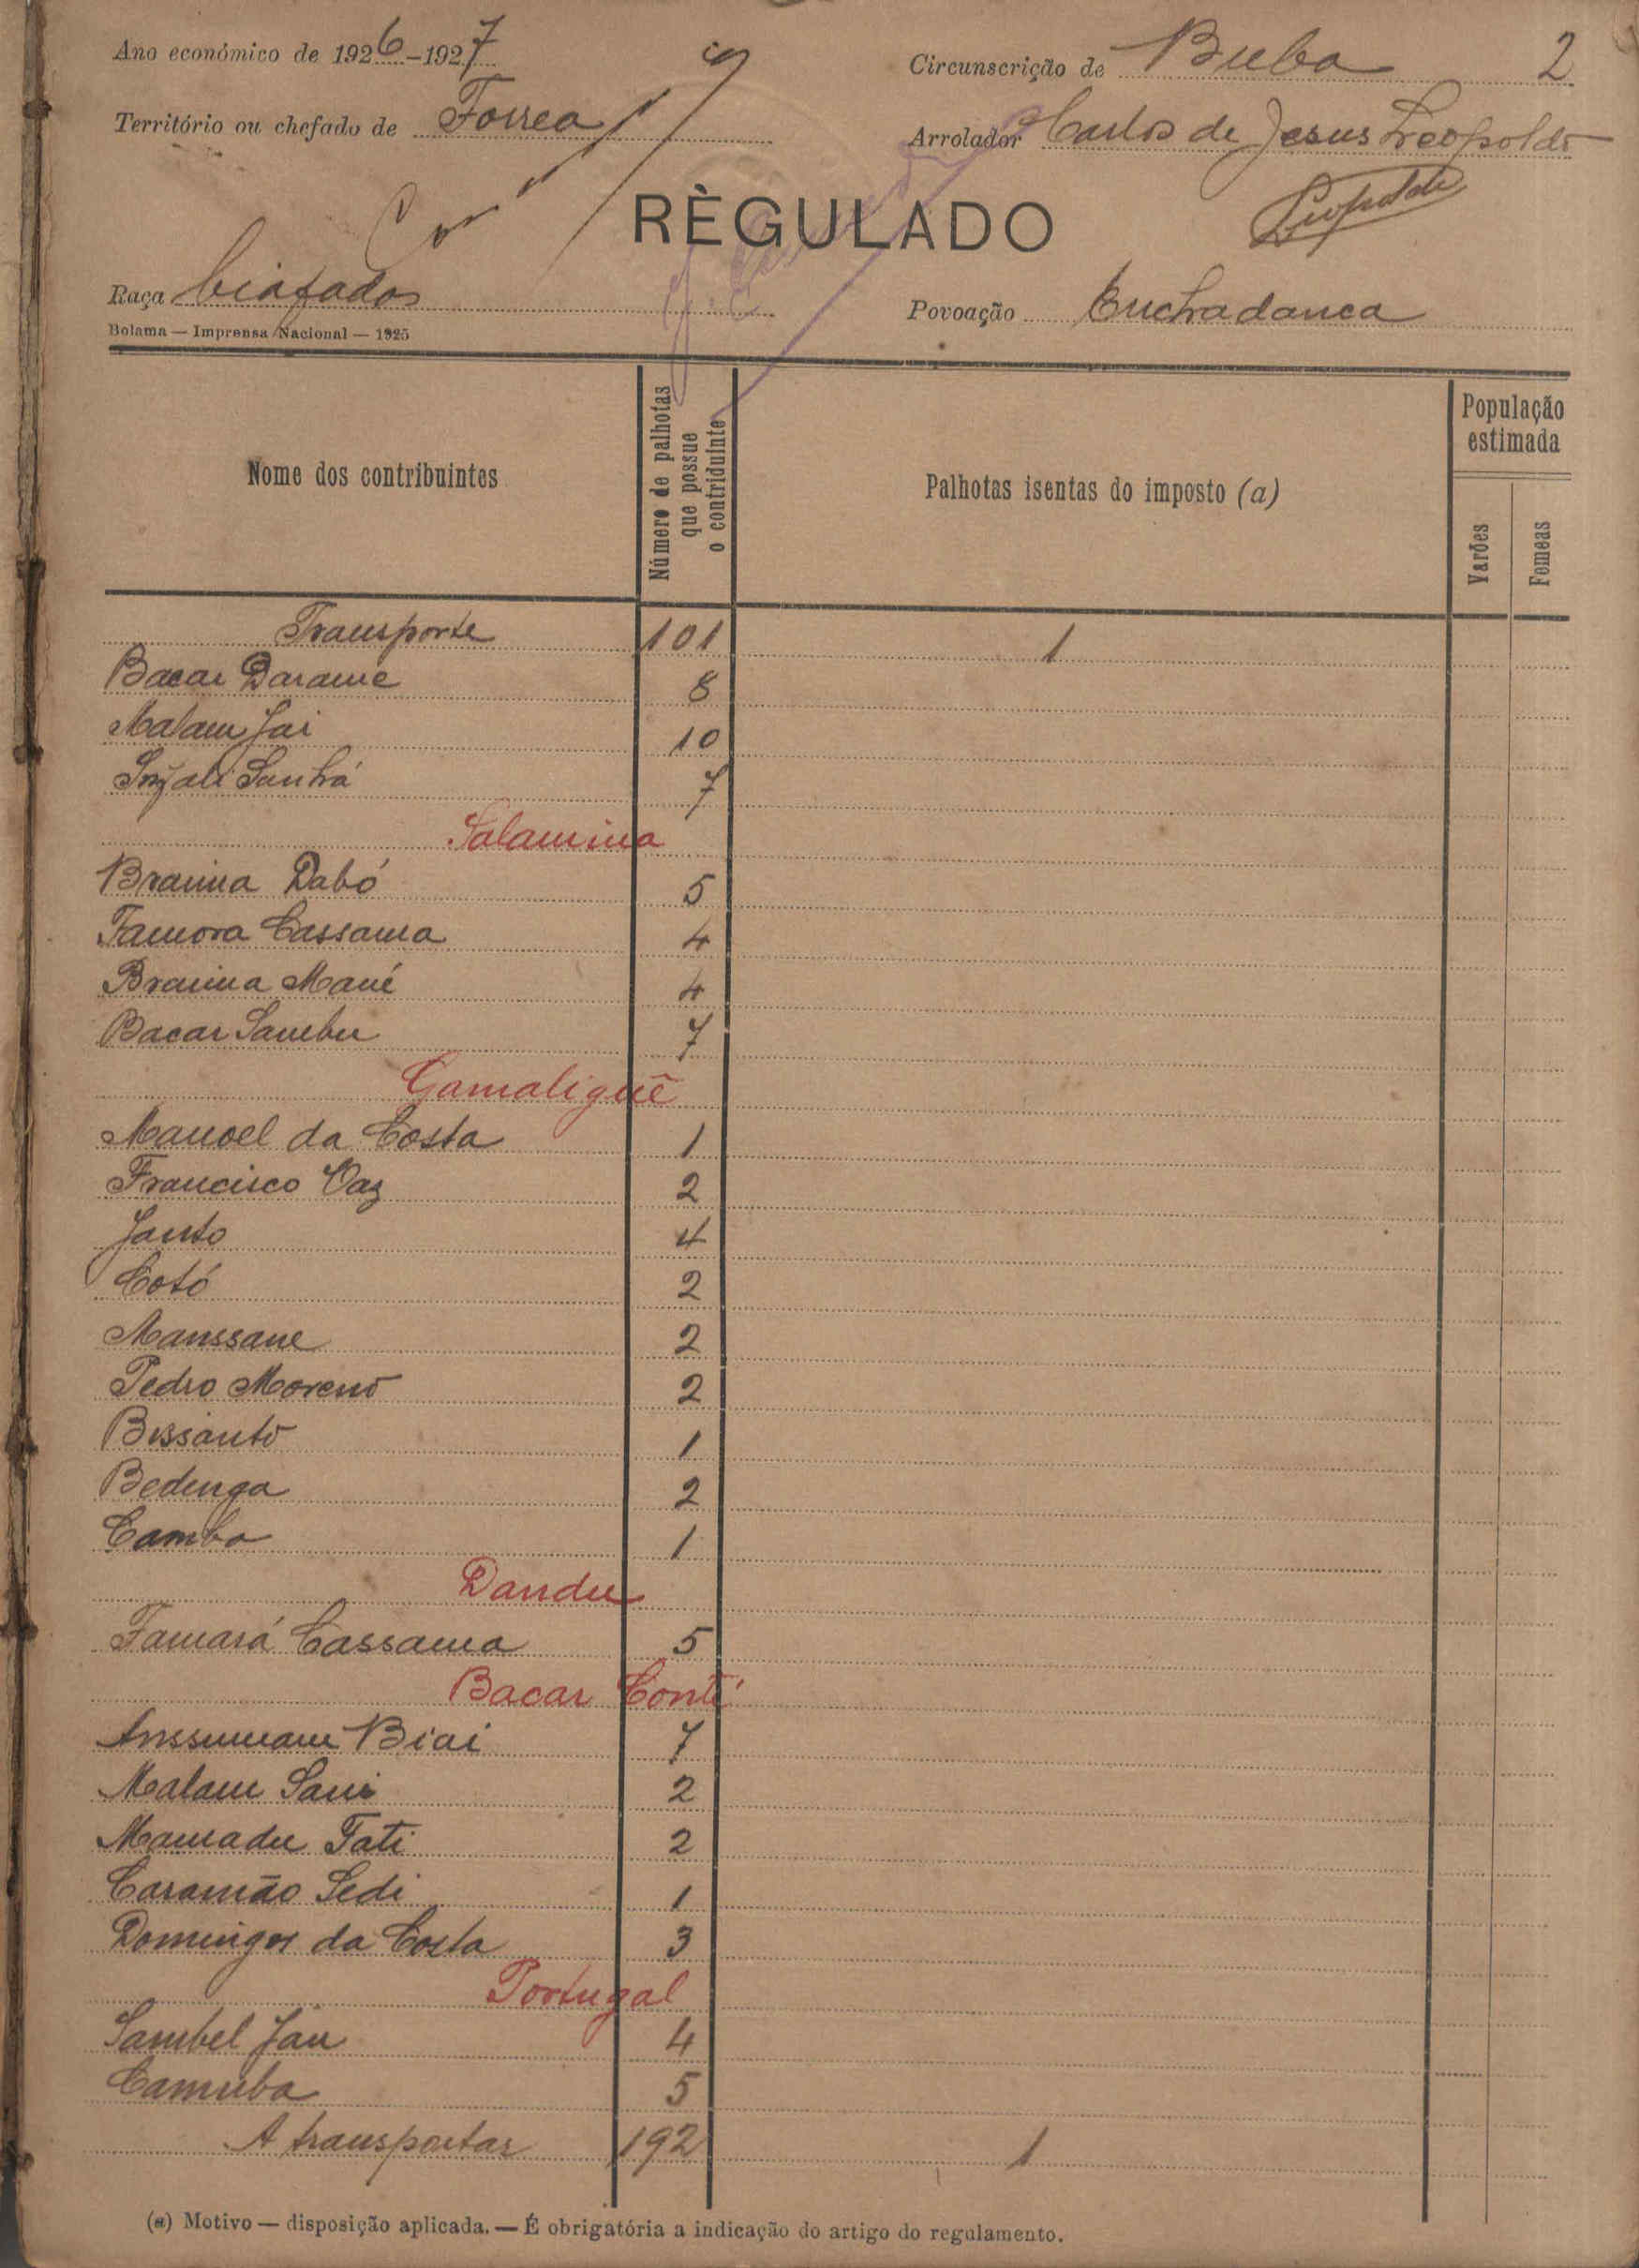 Ano económico de 1926-1927
Circunscrição de Buba 2
Território ou chefado de Forrea
Arrolador Carlos de Jesus Leopoldo
Leopoldo
RÈGULADO
Raça biafados
Povoação Cuchadanca
Bolama — Imprensa Nacional — 1925
Nome dos contribuintes
Número de palhotas
que possue
o contriduinte
Palhotas isentas do imposto (a)
População
estimada
Varões
Femeas
Transporte 101 1
Bacar Darame 8
Malam Jai 10
Sanhá 7
Salamina
Braima Dabó 5
Famora Cassama 4
Braima Mané 4
Bacar Sambu 7
Gamaliguê
Manoel da Costa 1
Francisco Vaz 2
Janto 4
Cotó 2
Manssane 2
Pedro Moreno 2
Bissanto 1
Bedinga 2
Camba 1
Dandu
Famará Cassama 5
Bacar Conté
Anssumane Biai 7
Malam Sani 2
Mamadu Fati 2
Caramão Sedi 1
Domingos da Costa 3
Portugal
Sambel Jau 4
Camuba 5
A transportar 192 1
(a) Motivo — disposição aplicada. — É obrigatória a indicação do artigo do regulamento.